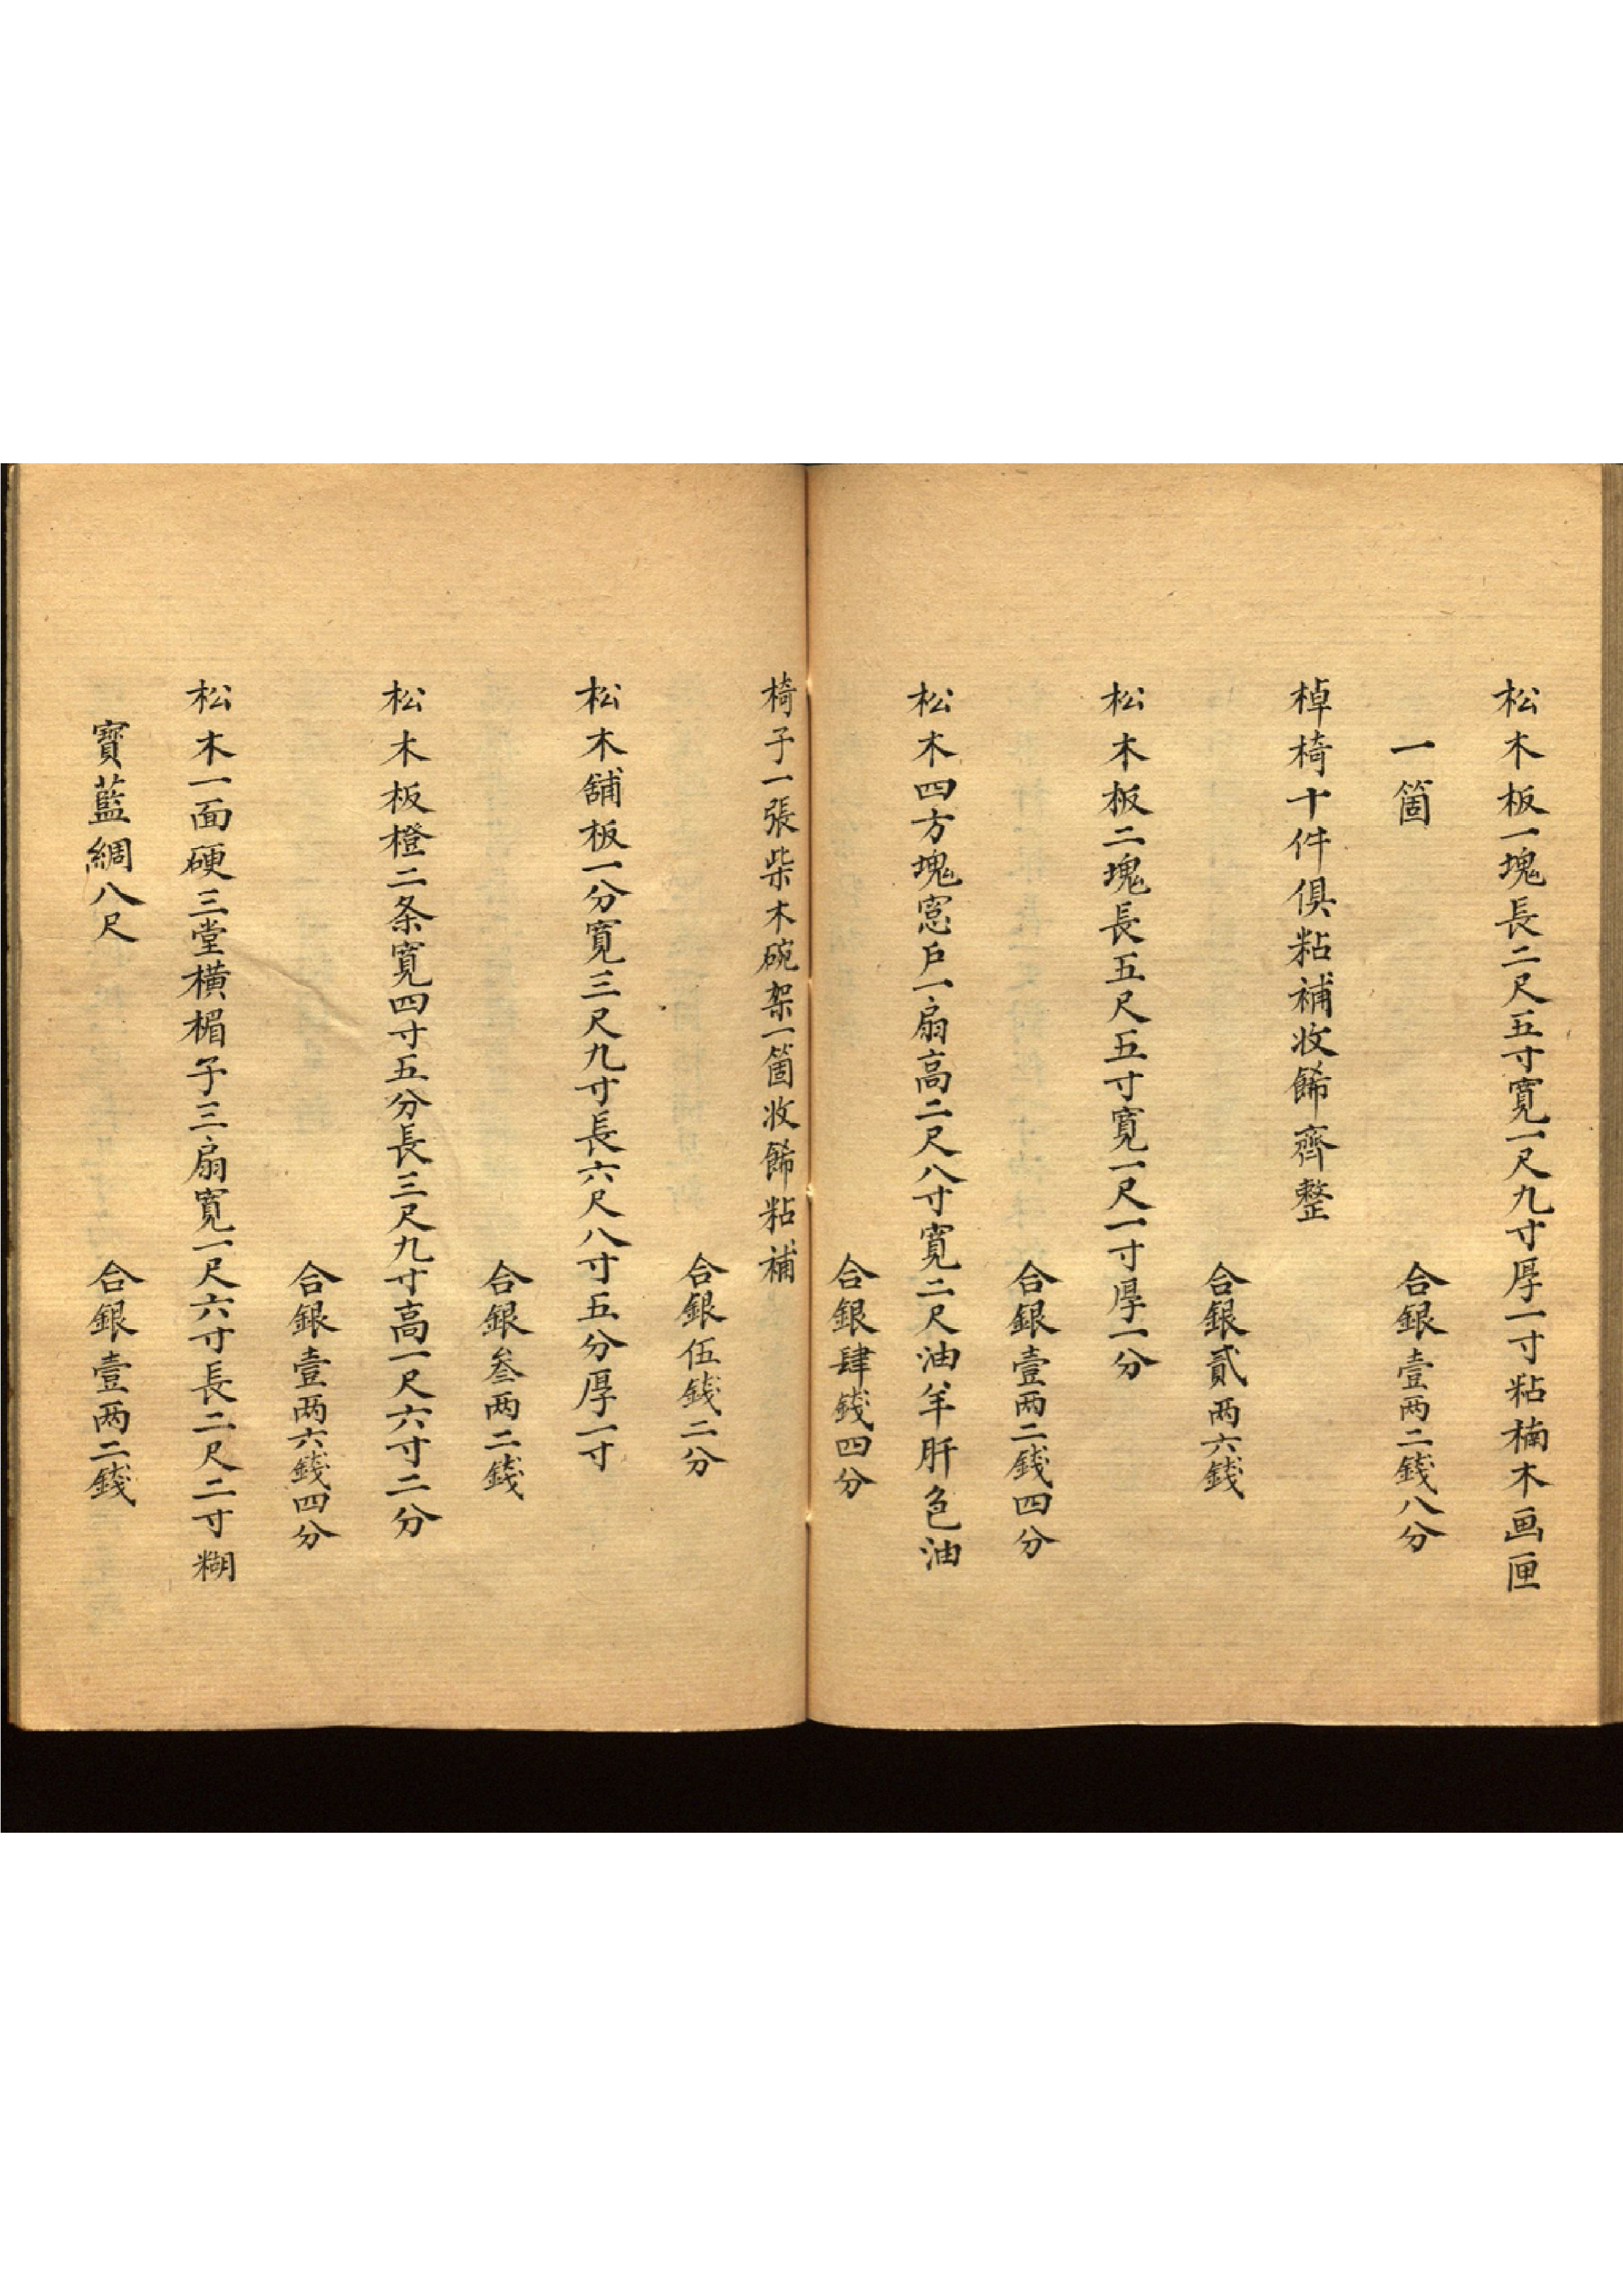 松木板一塊長二尺五寸寬一尺九寸厚一寸粘楠木画匣
一箇　合銀壹两二錢八分
棹椅十件俱粘補收餙齊整
合銀貳两六錢
松木板二塊長五尺五寸寬一尺一寸厚一分
合銀壹两二錢四分
松木四方塊窓戶一扇高二尺八寸寬二尺油羊肝色油
合銀肆錢四分
椅子一張柴木碗架一箇收餙粘補
合銀伍錢二分
松木舖板一分寬三尺九寸長六尺八寸五分厚一寸
合銀叁两二錢
松木板橙二条寬四寸五分長三尺九寸高一尺六寸二分
合銀壹两六錢四分
松木一面硬三堂橫楣子三扇寬一尺六寸長二尺二寸糊
寶藍綢八尺　合銀壹两二錢